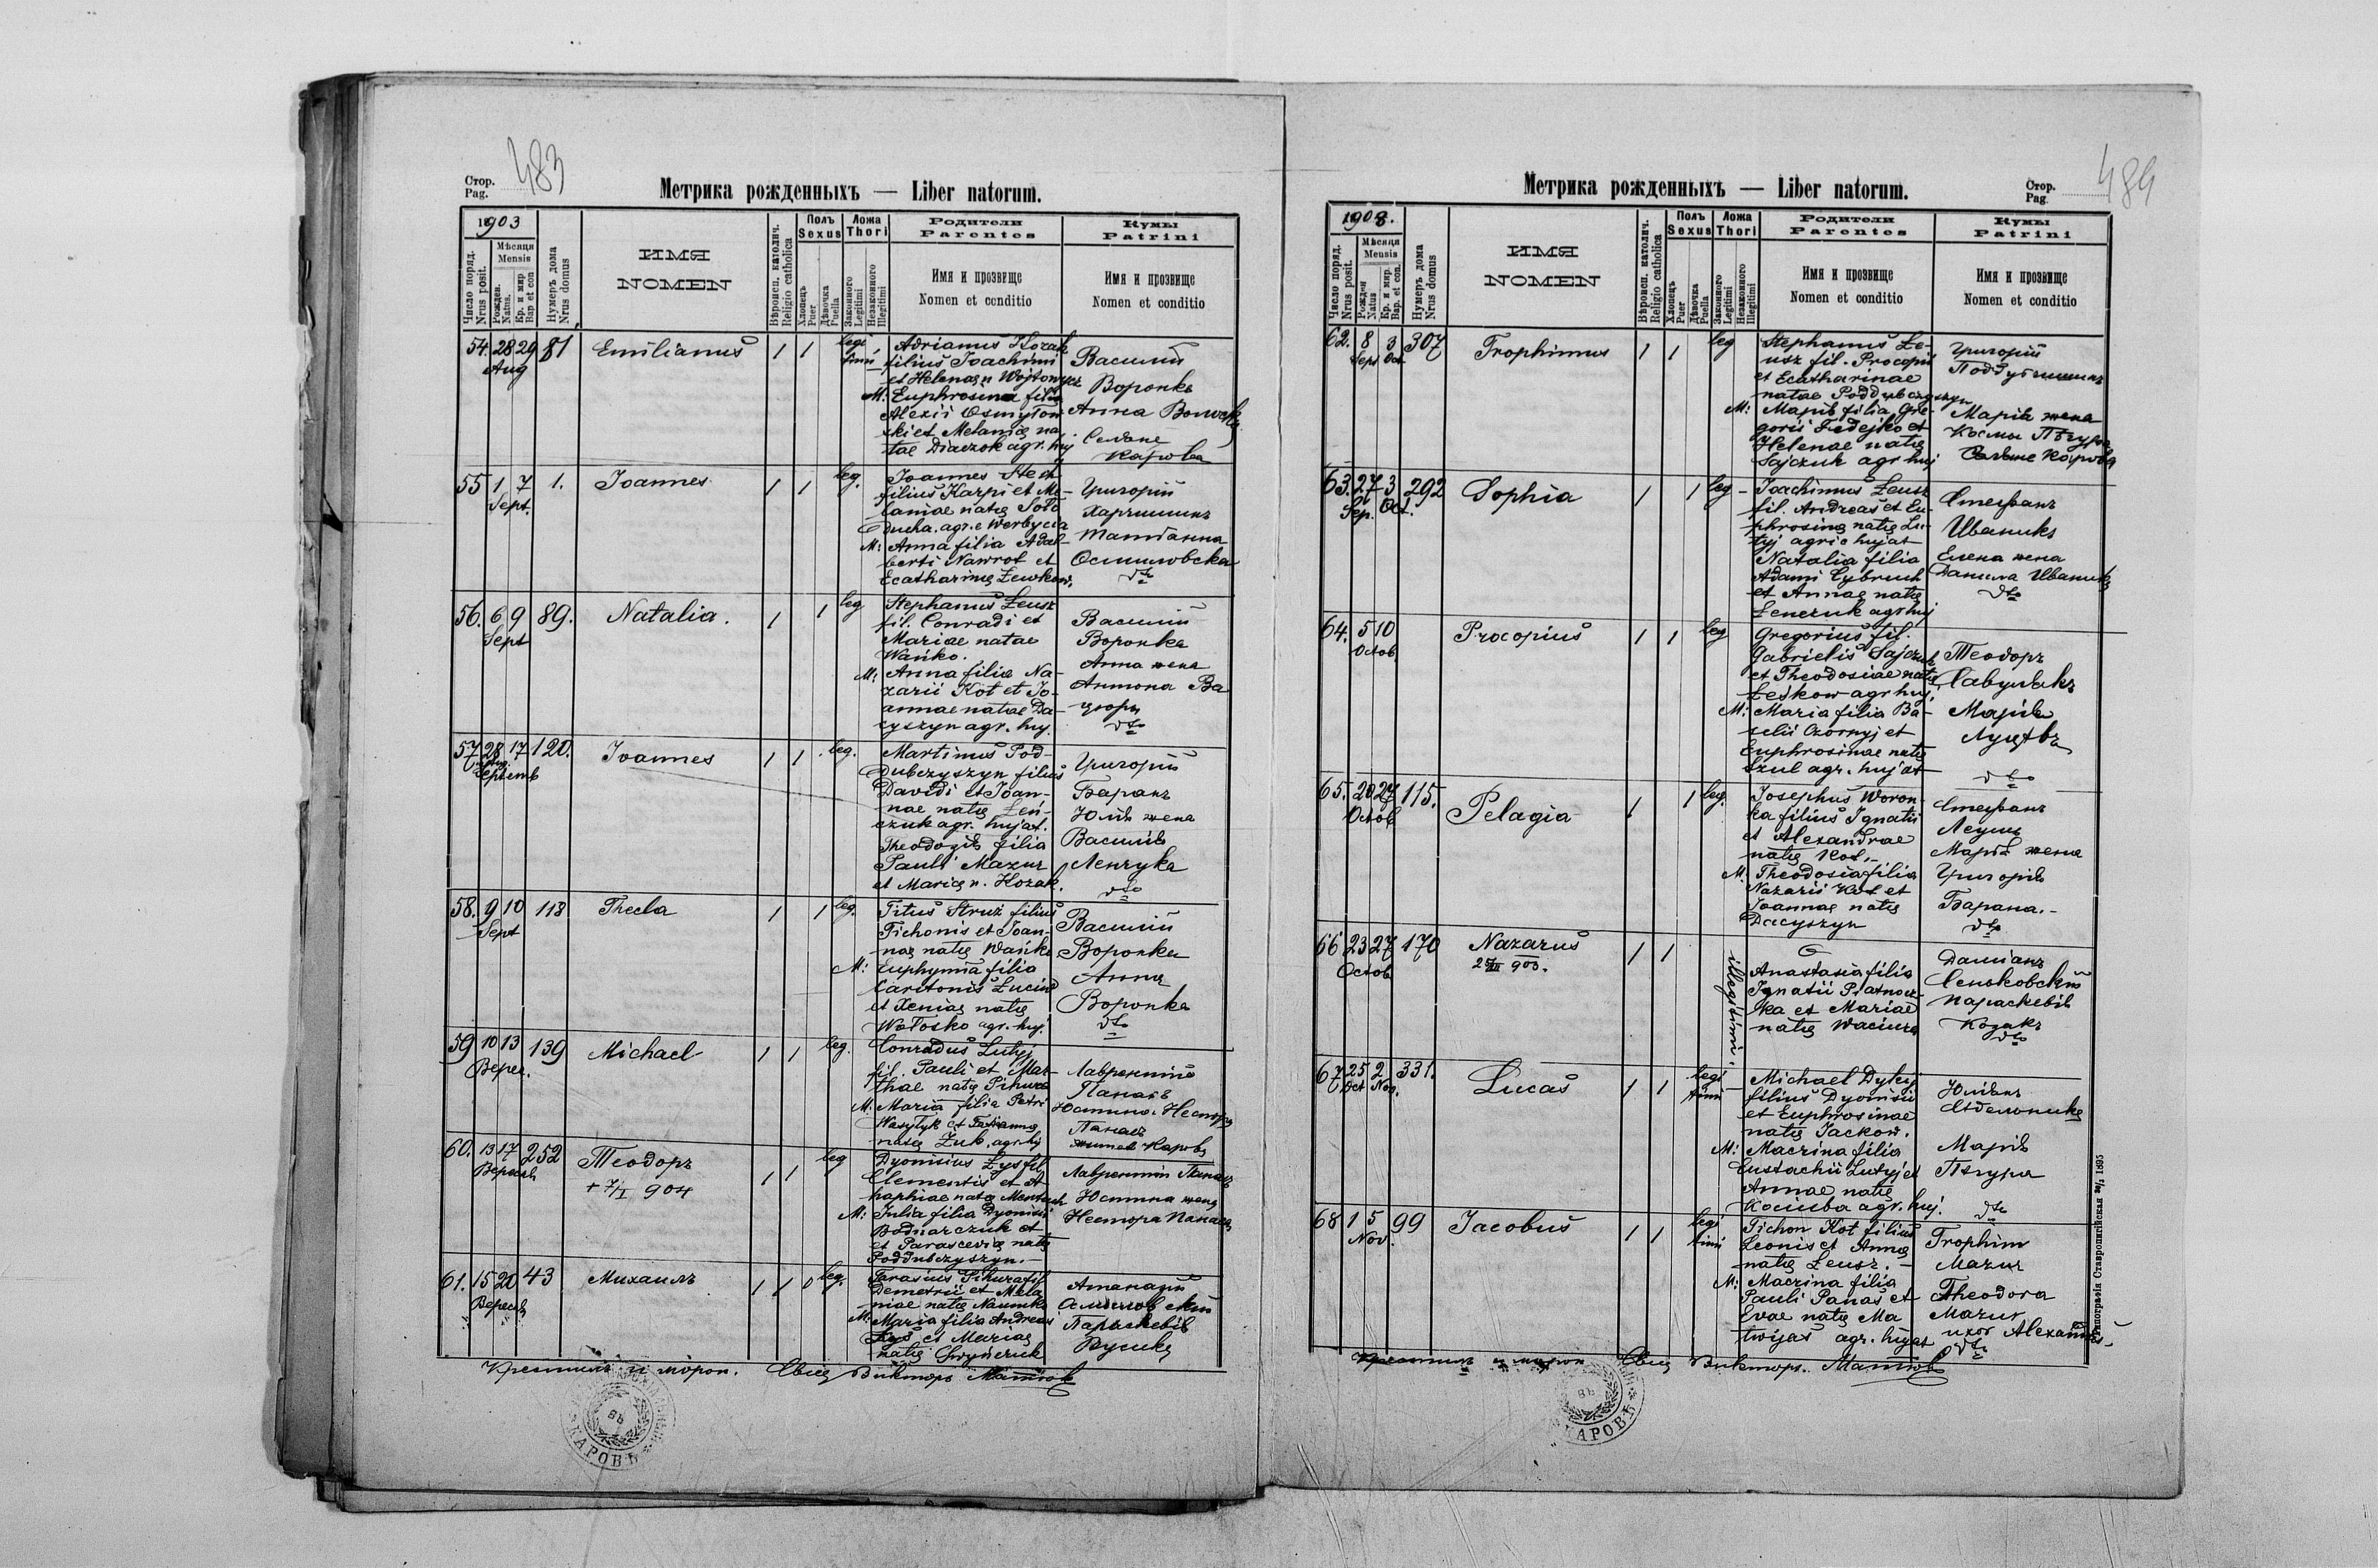 483
Стор.
Pag.
Метрика рожденныхъ — Liber natorum.
1903
Число поряд.
Nrus posit.
Мѣсяця
Mensis
Рожден.
Natus.
Кр. и мир
Bap et con
Нумеръ дома
Nrus domus
ИМЯ
NOMEN
Вѣроисп. католич.
Religio catholica
Полъ
Sexus
Хлопець
Puer
Дѣвочка
Puella
Ложа
Thori
Законного
Legitimi
Незаконного
Illegitimi
Родители
Parentes
Имя и прозвище
Nomen et conditio
Кумы
Patrini
Имя и прозвище
Nomen et conditio
54. 28 29 81 Emilianus 1 1 legi
Aug timi
Adrianus Kozak
filius Joachimi
et Helenae n Wojtowycz
M: Euphrosina filia
Alexii Osmyłow
ski et Melanię na
tae Diaczok agr. huj
Василій
Воронка
Анна
Селяне
Карова
55 1 7 1. Joannes 1 1 leg.
Sept.
Joannes Stech
filius Karpi et Me-
laniae natę
ducha. agr. e Werbycia
M: Anna filia Adal-
berti Nawrot et
Ecatharinę Lewkow.
Григорій
Харчишинъ
Осмиловска
dto
56. 6 9 89. Natalia. 1 1 leg
Sept
Stephanus Łeusz
fil. Conradi et
Mariae natae
Wańko.
M: Anna filia Na-
zarii Kot et Jo-
annae natae Da-
cyszyn agr. huj.
Василій
Воронка
Анна жена
Антона Ва
цюры
dto
57 28 17 120. Joannes 1 1 leg.
Aug.
Septemb
Martinus Pod-
dubczyszyn filius
Davidi et Joan-
nae natę Łeń-
czuk agr. hujat.
filia
Pauli Mazur
et Marię n. Kozak.
Григорій
Баранъ
Юлія жена
Василія
Ленчука
dto
58. 9 10 118 Thecla 1 1 leg.
Sept
Titus Struż filius
Tichonis et Joan-
nae natę Wańko
M: Euphymia filia
Caritonis
et Xenias natę
Wołosko agr. huj.
Василій
Воронка
Анна
Воронка
dto
59 10 13 139 Michael 1 1 leg.
Верес.
Conradus Lutyj
fil. Pauli et Mar-
thae natę Pihura
M: Maria filia Petri
Wasylyk et Tatianna
natę Żuk. agr. hj
Лаврентій
Панасъ
Юстина Нестора
Панасъ
60. 13 17 252 Теодоръ 1 1 leg
Вересня
+ 7/I 904
Dyonisius Łys fil
Clementis et A
haphiae natę
M: Julia filia Dyonisii
Bodnarczuk et
et Parascevię natę
Poddubczyszyn.
Лаврентій Панасъ
Юстина жена
Нестора Панаса
61. 15 20 43 Михаилъ 1 1 0 leg.
Вересня
Tarasius Pihura fil
Demetrii et Mela
niae natę Naumko
M: Maria filia Andreas
et Mariae
natę
Атанацій
Параскевія
Вусика
Крестилъ и миров. Свящ Викторъ Матковъ
КАРОВѢ
484
Стор.
Pag.
Метрика рожденныхъ — Liber natorum.
1903.
Число поряд.
Nrus posit.
Мѣсяця
Mensis
Рожден
Natus
Кр. и мир.
Bap. et con.
Нумеръ дома
Nrus domus
ИМЯ
NOMEN
Вѣроисп. католич.
Religio catholica
Полъ
Sexus
Хлопець
Puer
Дѣвочка
Puella
Ложа
Thori
Законного
Legitimi
Незаконного
Illegitimi
Родители
Parentes
Имя и прозвище
Nomen et conditio
Кумы
Patrini
Имя и прозвище
Nomen et conditio
62. 8 3 307 Trophimus 1 1 leg
Sept Oct.
Stephanus Łe-
usz fil. Procopii
et Ecatharinae
natae Poddubczyszyn
M: Марія filia Gre-
goris Fedejko et
Helenae natę
Sajczuk agr huj
Григорій
Поддубчишинъ
Марія жена
Космы Пѣгура
63. 27 3 292 Sophia 1 1 leg
Sep. Oct.
Joachimus Łeusz
fil. Andreas et Eu-
phrosinę natę Lu-
tyj agric hujat
Natalia filia
Adami Cybruch
et Annae natę
Łenczuk agr huj
Стефанъ
Иваникъ
Елена жена
Данила Иваника
dto
64. 5 10 Procopius 1 1 leg
Octob.
Gregorius fil.
Gabrielis Sajczuk
et Theodosiae natę
Łeśkow agr huj.
M: Maria filia Ba-
silii Czornyj et
Euphrosinae natę
Szul agr. hujat
Теодоръ
Савулякъ
Марія
dto
65. 20 27 115. Pelagia 1 1 leg.
Octob
Josephus Woron-
ka filius Ignatii
et Alexandrae
natę Kot.-
M. Theodosia filia
Nazarii Kot et
Joannae natę
Dacyszyn
Стефанъ
Леушъ
Марія жена
Григорія
Барана.-
dto
66 23 27 170 Nazarus 1 1 illegitimi.
Octob
903.
Anastasia filia
Ignatii Płatnocz-
ka et Mariae
natę Waciura
Даміанъ
Сеньковскій
Параскевія
Козакъ
dto
67 25 2 331. Lucas 1 1 legi
Oct Nov. timi
Michael Dykyj
filius Dyonisii
et Euphrosinae
natę Jackow.
M: Macrina filia
Eustachii Lutyj et
Annae natę
Kociuba agr. huj.
Юліанъ
Марія
Пѣгура
dto
68 1 5 99 Jacobus 1 1 legi
Nov. timi
Tichon Kot filius
Leonis et Annę
natę Łeusz.-
M: Macrina filia
Pauli Panas et
Evae natę Ma
twijas agr. hujat
Trophim
Mazur
Theodora
Mazur
uxor Alexandri
dto
Крестилъ и миров Свящ Викторъ. Матковъ
КАРОВѢ
Типографія Ставропигійская 1895